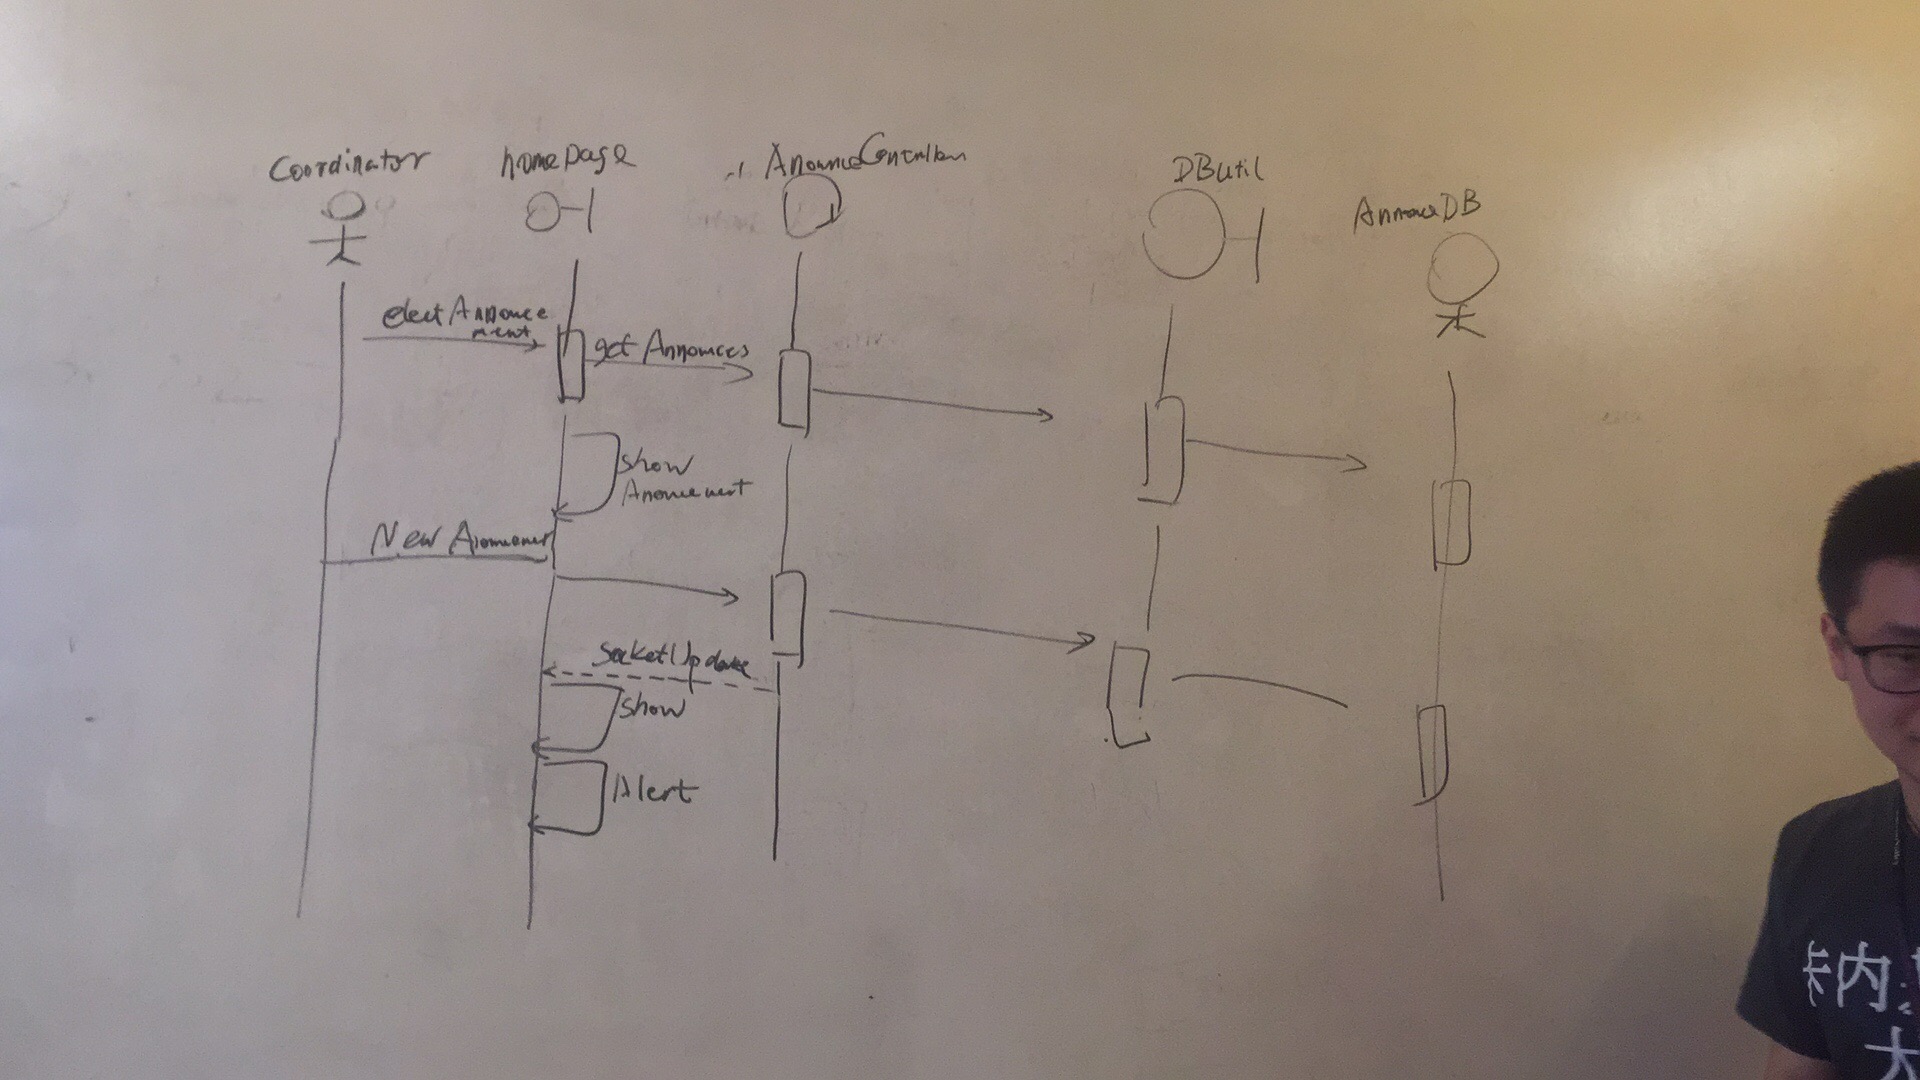 Coordinator
homepage
AnounceContrallen
DBUtil
AnnouceDB
elect Annonce
ment
get Annonces
Show
Anouncement
New
SocketUpdate
Show
Alert
卡内
大